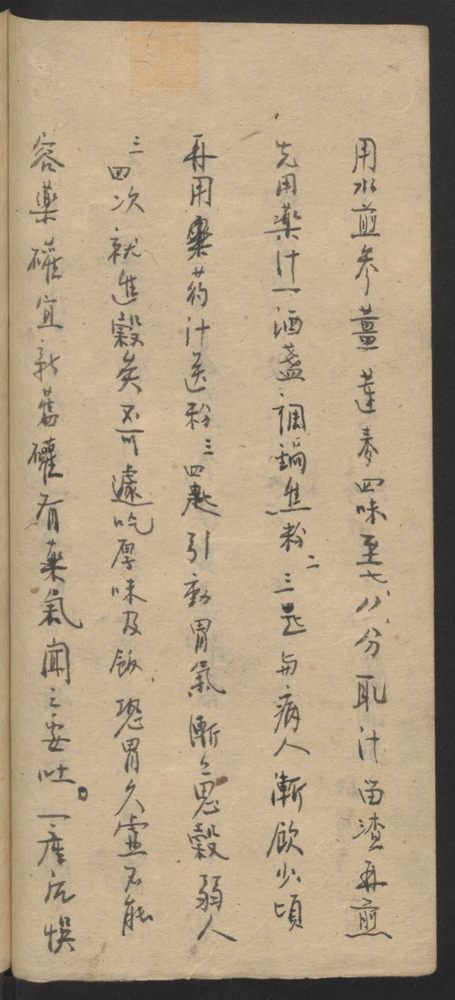 用水煎参薑蓮麦四味至七八分取汁留渣再煎
先用藥汁一酒盞調鍋焦粉二三匙与病人漸飲少頃
再用藥汁送粉三四匙引動胃氣漸々思穀弱人
三四次就進穀矣不可遽吃厚味及飯恐胃久虛不能
容藥礶宜新舊礶有藥氣聞之要吐一產后惧